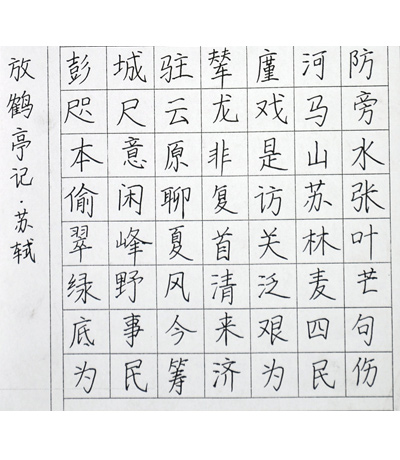 放鹤亭记·苏轼
彭城驻辇廑河防
咫尺云龙戏马旁
本意原非是山水
偷闲聊复访苏张
翠峰夏首关林叶
绿野风清泛麦芒
底事今来艰四句
为民筹济为民伤